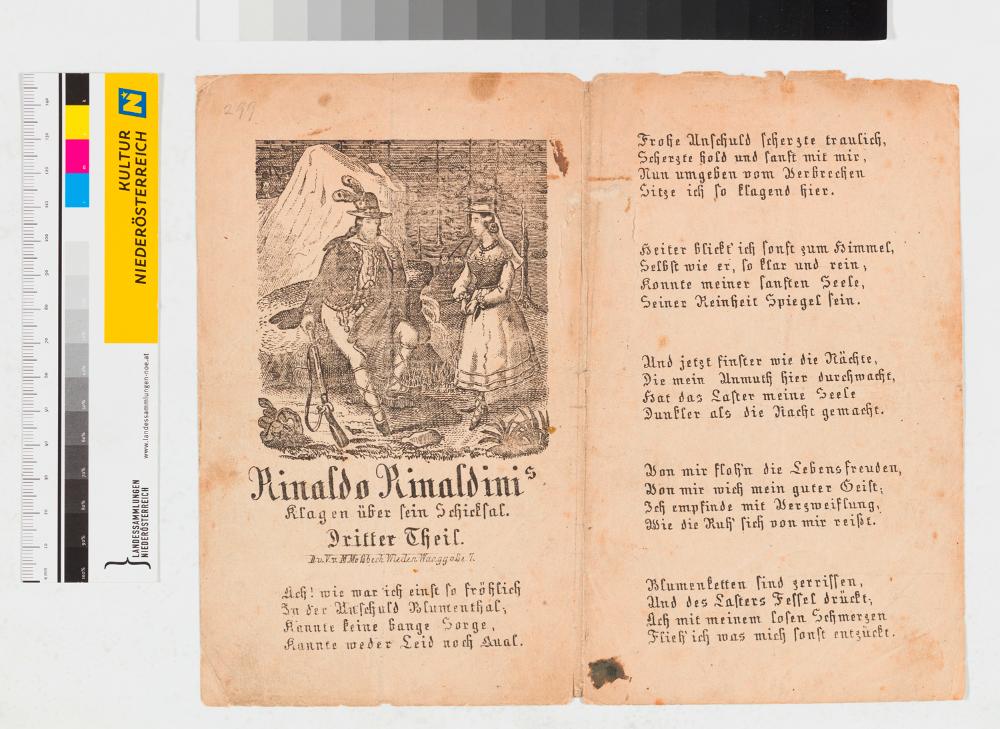 KULTUR
NIEDERÖSTERREICH
www.landessammlungen-noe.at
LANDESSAMMLUNGEN
NIEDERÖSTERREICH
299
Rinaldo Rinaldinis
Klagen über sein Schicksal.
Dritter Theil.
Dr. u. V. v. M. Moßbeck Wieden Waaggaße 7.
Ach! wie war ich einst so fröhlich
In der Unschuld Blumenthal,
Kannte keine bange Sorge,
Kannte weder Leid noch Qual.
Frohe Unschuld scherzte traulich,
Scherzte hold und sanft mit mir,
Nun umgeben vom Verbrechen
Sitze ich so klagend hier.
Heiter blickt' ich sonst zum Himmel,
Selbst wie er, so klar und rein,
Konnte meiner sanften Seele,
Seiner Reinheit Spiegel sein.
Und jetzt finster wie die Nächte,
Die mein Unmuth hier durchwacht,
Hat das Laster meine Seele
Dunkler als die Nacht gemacht.
Von mir floh'n die Lebensfreuden,
Von mir wich mein guter Geist;
Ich empfinde mit Verzweiflung,
Wie die Ruh' sich von mir reißt.
Blumenketten sind zerrissen,
Und des Lasters Fessel drückt;
Ach mit meinem losen Schmerzen
Flieh' ich was mich sonst entzückt.